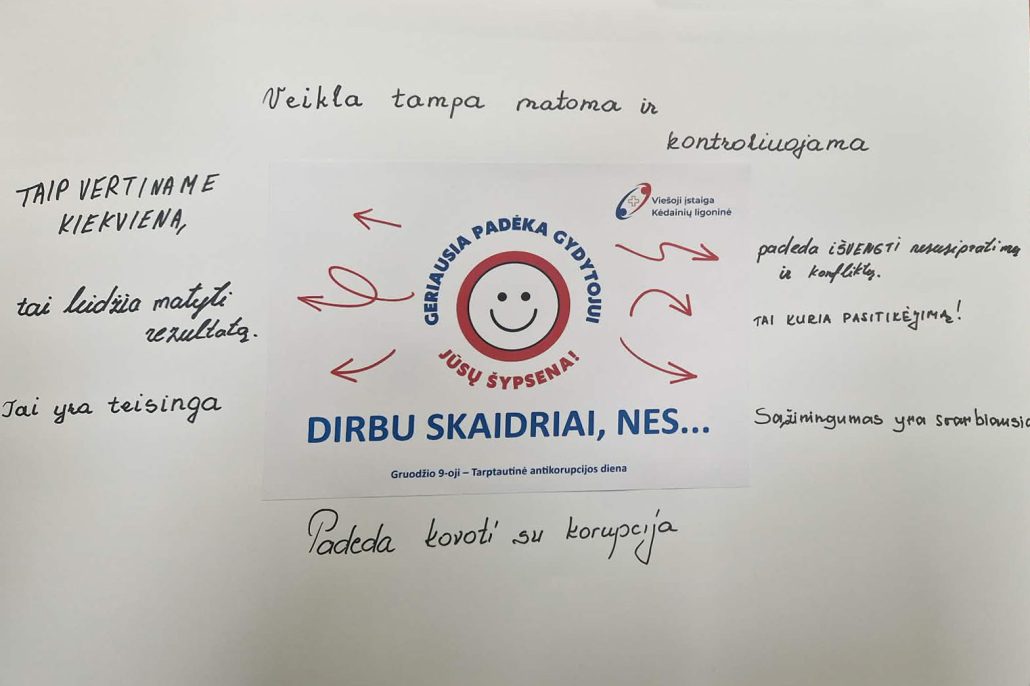 Veikla tampa matoma ir
kontroliuojama
TAIP VERTINAME
KIEKVIENA,
tai leidžia matyti
rezultatą.
Tai yra teisinga
Viešoji įstaiga
Kėdainių ligoninė
GERIAUSIA PADĖKA GYDYTOJUI
JŪSŲ ŠYPSENA!
padeda IŠVENGTI nesusipratimų
ir konfliktų.
TAI KURIA PASITIKĖJIMĄ!
Sąžiningumas yra svarbiausia
DIRBU SKAIDRIAI, NES...
Gruodžio 9-oji – Tarptautinė antikorupcijos diena
Padeda kovoti su korupcija